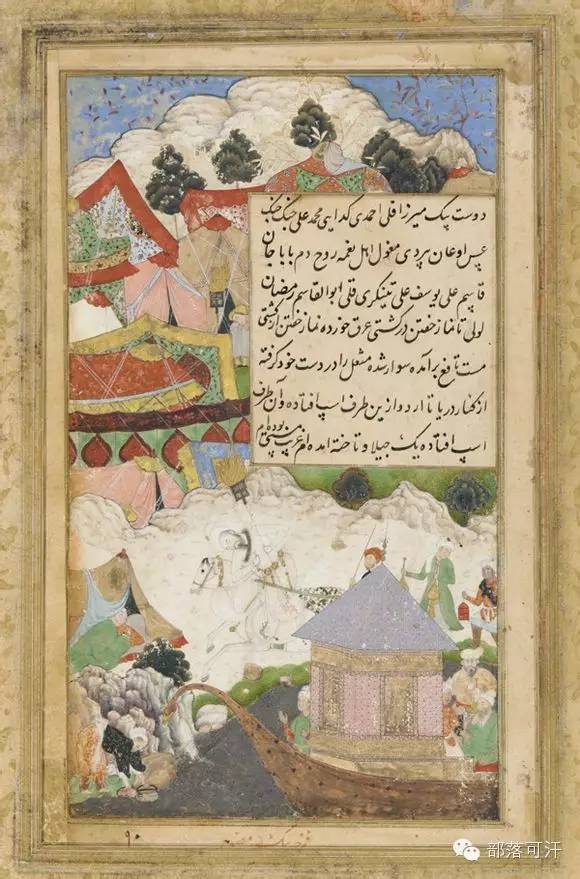 دوست بیک میرزا قلی احمدی کدایی محمد علی جنک جنک
عسس اوغان بردی مغول اهل نغمه روح دم بابا جان
قاسم علی یوسف علی تینکری قلی ابوالقاسم رمضان
لولی تا نماز خفتن در کشتی عرق خورده نماز خفتن از کشتی
مست تافع برآمده سوار شده مشعل را در دست خود کرفته
از کنار دریا تا اردو ازین طرف اسپ افتاده و آن طرف
اسپ افتاده یک جیلاو تاخته آمده ام
۹۰
部落可汗